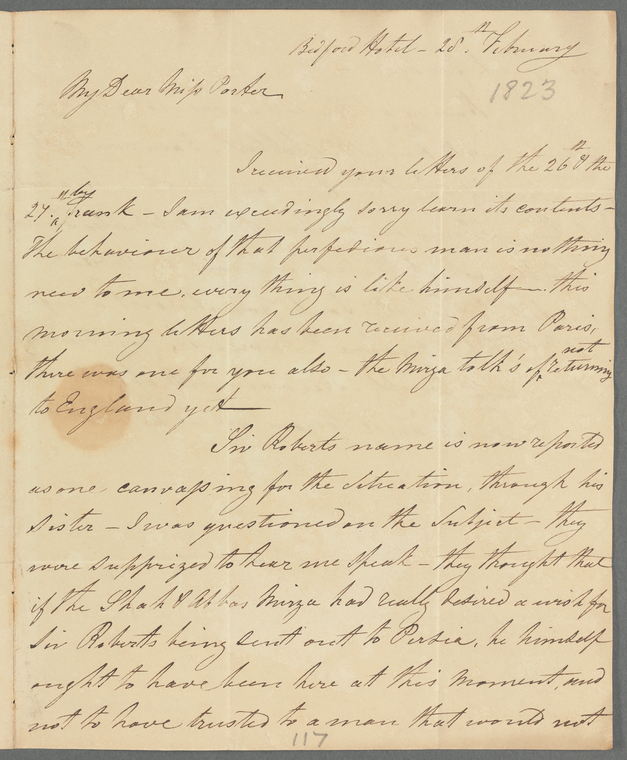 Bedford Hotel – 28.th February
1823
My Dear Miss Porter
I received your letters of the 26th & the
27.th by Frank – I am exceedingly sorry learn its contents –
The behaviour of that perfedious man is nothing
new to me, every thing is like himself – this
morning letters has been received from Paris,
there was one for you also – the Mirza talk's of not returning
to England yet –
Sir Roberts name is now reported
as one canvassing for the Situation, through his
Sister – I was questioned on the Subject – they
were supprized to hear me speak – they thought that
if the Shah & Abbas Mirza had really desired a wish for
Sir Roberts being sent out to Persia, he himself
ought to have been here at this moment, and
not to have trusted to a man that would not
117